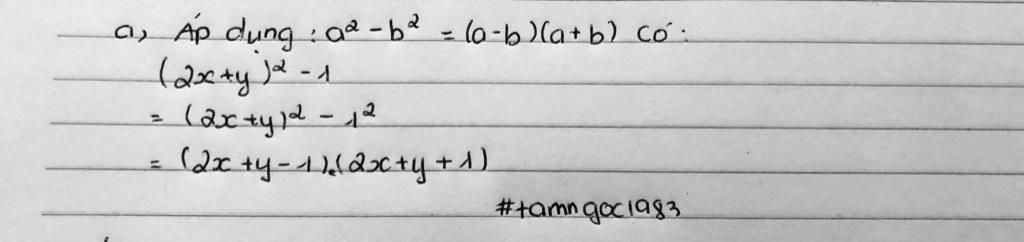 a, Áp dụng : a² - b² = (a-b)(a+b) có :
(2x+y)² - 1
= (2x+y)² - 1²
= (2x+y-1).(2x+y+1)
#tamngoc1983